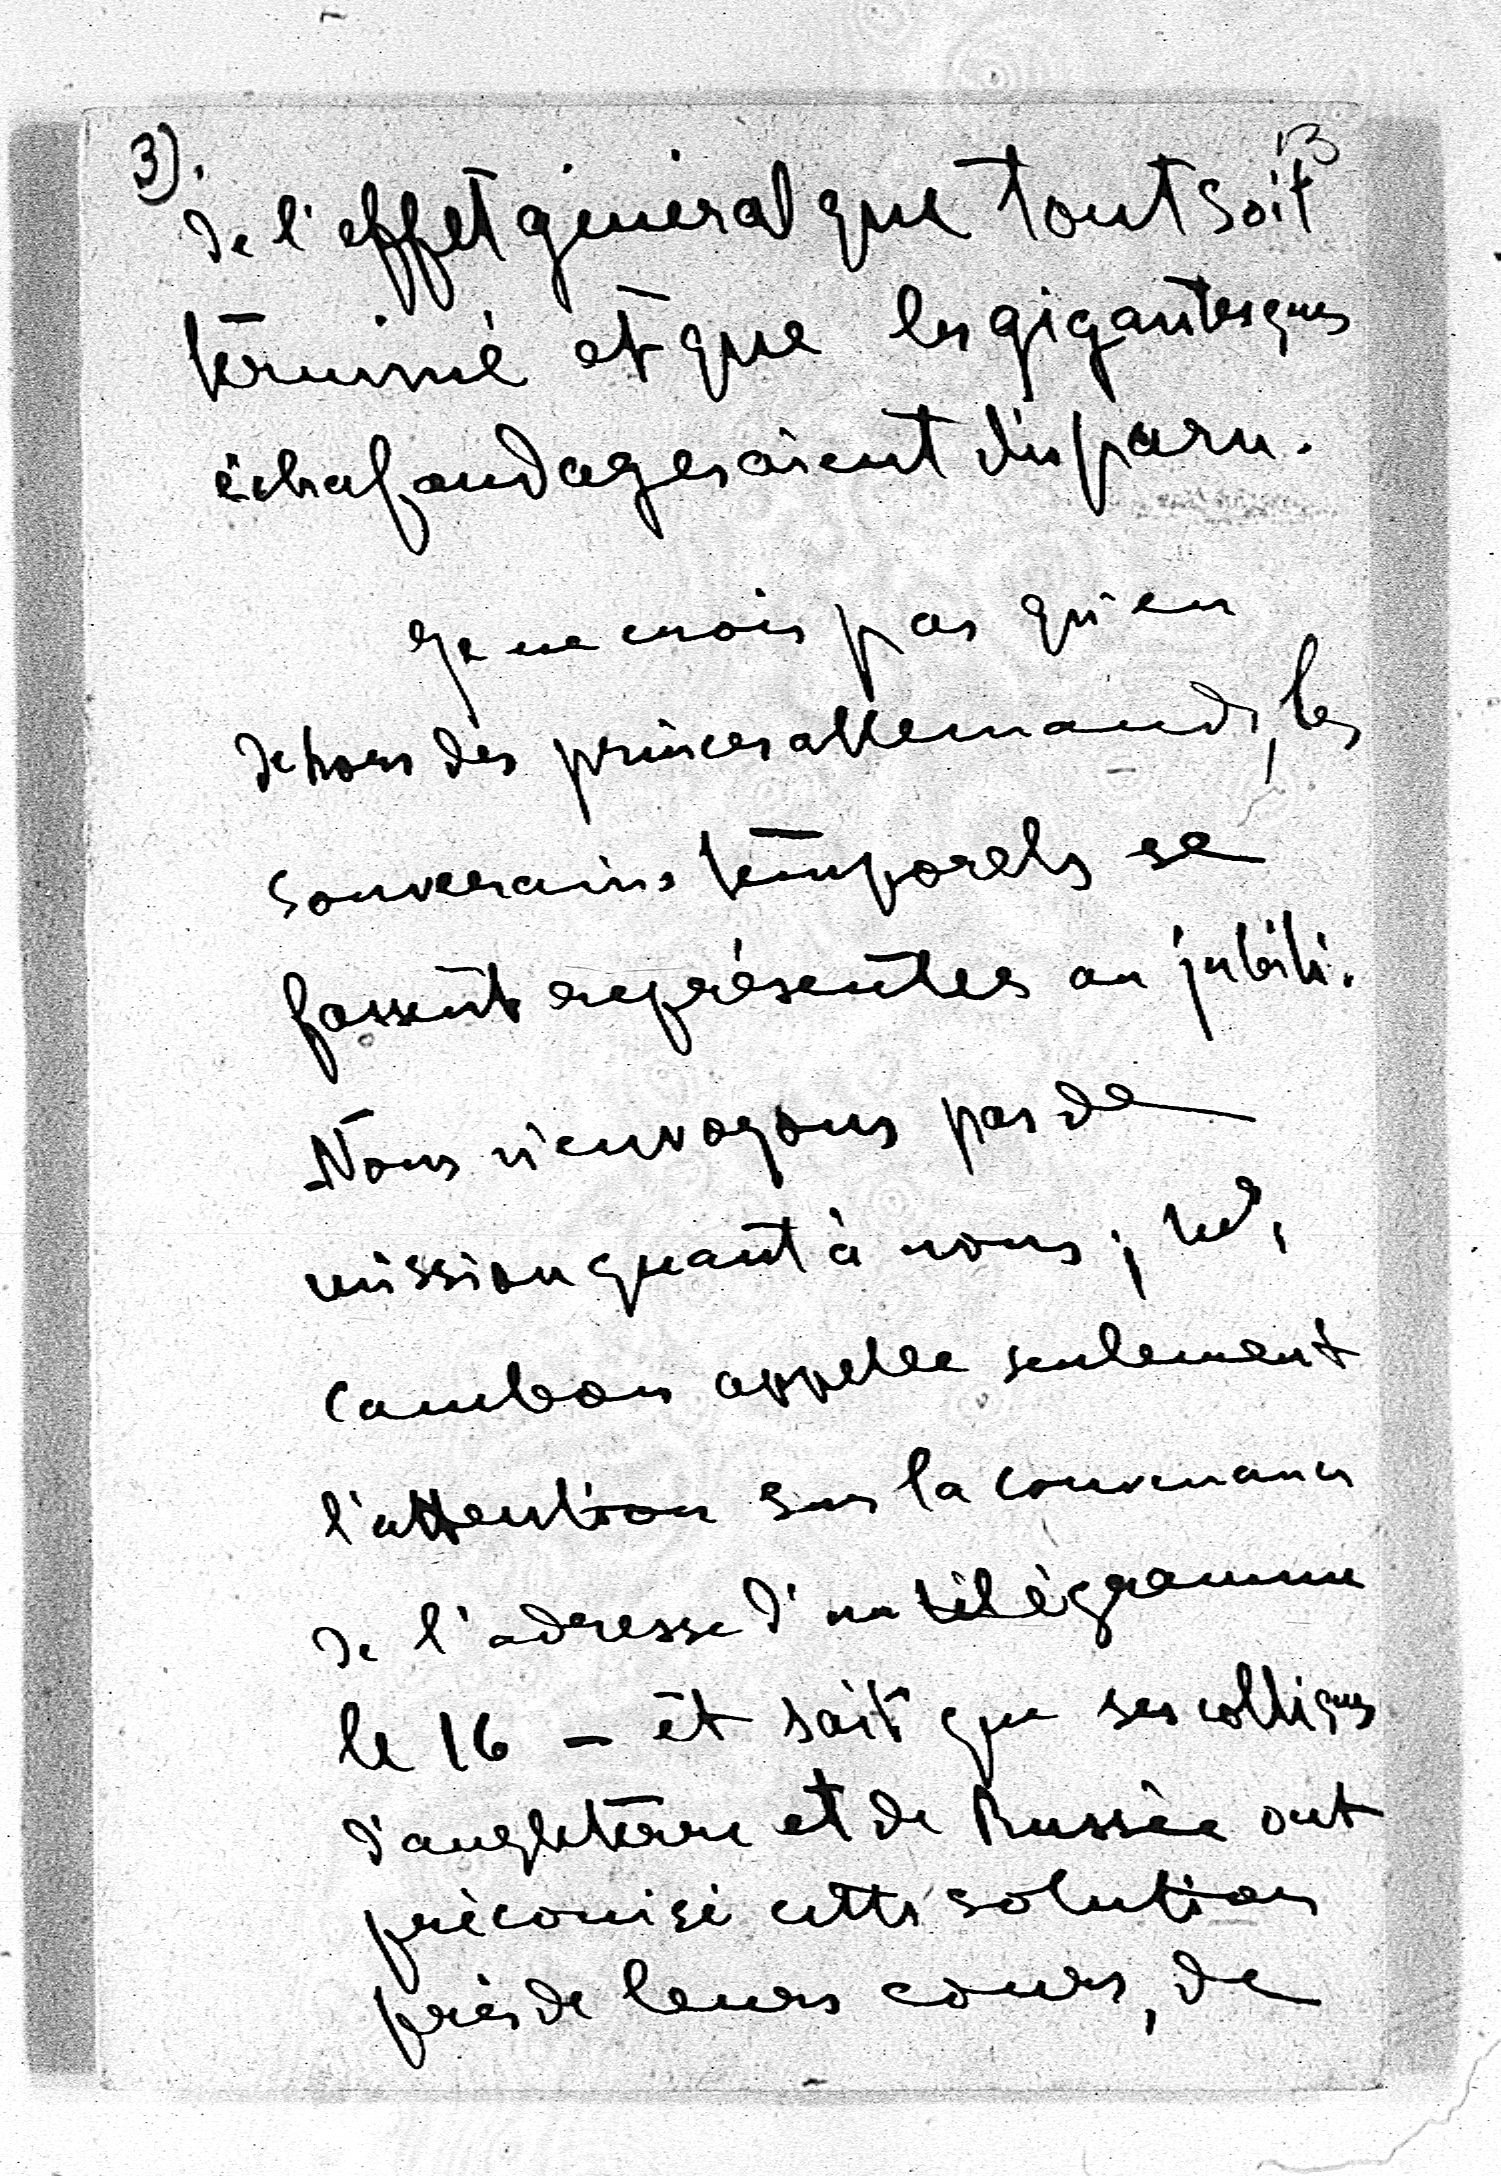 3).
13
de l'effet général que tout soit
terminé et que les gigantesques
échafaudages aient disparu.
Je ne crois pas qu'en
dehors des princes allemands, les
souverains temporels se
fassent représenter au jubilé.
Nous n'envoyons pas de
mission quant à nous ; Mr.
Cambon appelle seulement
l'attention sur la convenance
de l'adresse d'un télégramme
le 16 – et sait que ses collègues
d'Angleterre et de Russie ont
préconisé cette solution
près de leurs cours, de